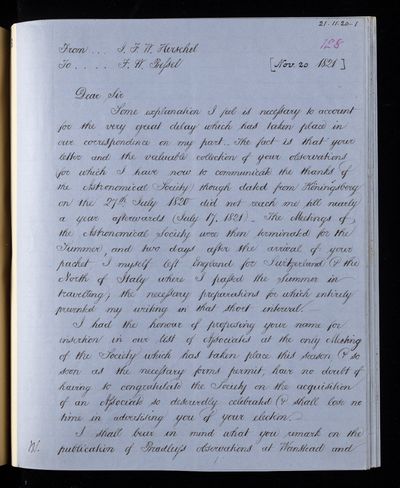 21-11-20-1
128
From ... J. F. W. Herschel
To ..... F. W. Bessel
[Nov. 20 1821]
Dear Sir
Some explanation I feel is necessary to account
for the very great delay which has taken place in
our correspondence on my part. The fact is that your
letter and the valuable collection of your observations
(for which I have now to communicate the thanks of
the Astronomical Society) though dated from Königsberg
on the 27th July 1820 did not reach me till nearly
a year afterwards (July 17, 1821) - The Meetings of
the Astronomical Society were then terminated for the
Summer, and two days after the arrival of your
packet I myself left England for Switzerland (& the
North of Italy where I passed the Summer in
travelling) the necessary preparations for which entirely
prevented my writing in that short interval.
I had the honour of proposing your name for
insertion in our list of Associates at the only Meeting
of the Society which has taken place this season (& so
soon as the necessary forms permit, have no doubt of
having to congratulate the Society on the acquisition
of an Associate so deservedly celebrated (& shall lose no
time in advertising you of your election.
I shall bear in mind what you remark on the
publication of Bradley's observations at Wanstead and